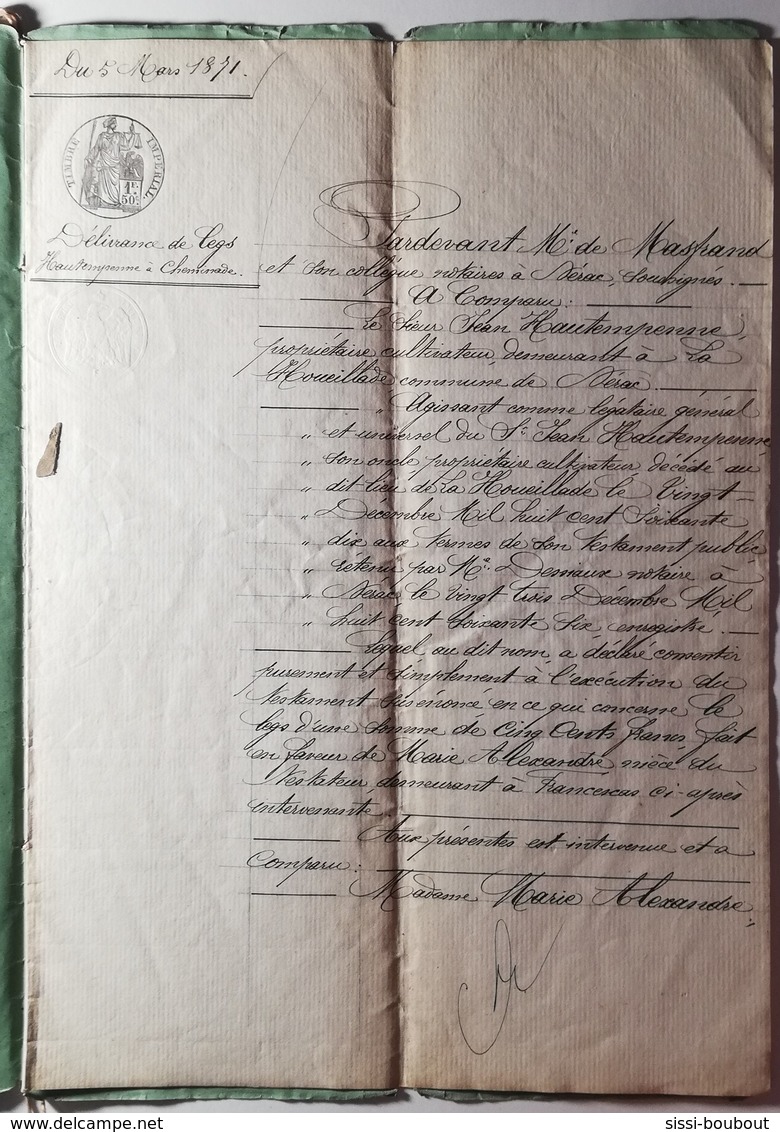 Du 5 Mars 1871.
TIMBRE IMPÉRIAL
1F.
50c.
Délivrance de legs
Hautempenne à Cheminade.
Pardevant Me. de Masfrand
et son collègue notaires à Nérac, soussignés.
A Comparu :
Le Sieur Jean Hautempenne,
propriétaire cultivateur, demeurant à La
Houeillade commune de Nérac.
" Agissant comme légataire général
" et universel du Sr. Jean Hautempenne
" son oncle propriétaire cultivateur, décédé au
" dit lieu de La Houeillade le Vingt
" Décembre Mil huit cent Soixante
" dix aux termes de son testament public
" retenu par Me. Dessaux notaire à
" Nérac le Vingt trois Décembre Mil
" huit cent soixante six enregistré.
Lequel au dit nom, a déclaré consentir
purement et simplement à l'exécution du
testament susénoncé en ce qui concerne le
legs d'une somme de Cinq Cents francs fait
en faveur de Marie Alexandre nièce du
Testateur demeurant à Francescas ci-après
intervenante.
Aux présentes est intervenue et a
Comparu :
Madame Marie Alexandre
sissi-boubout